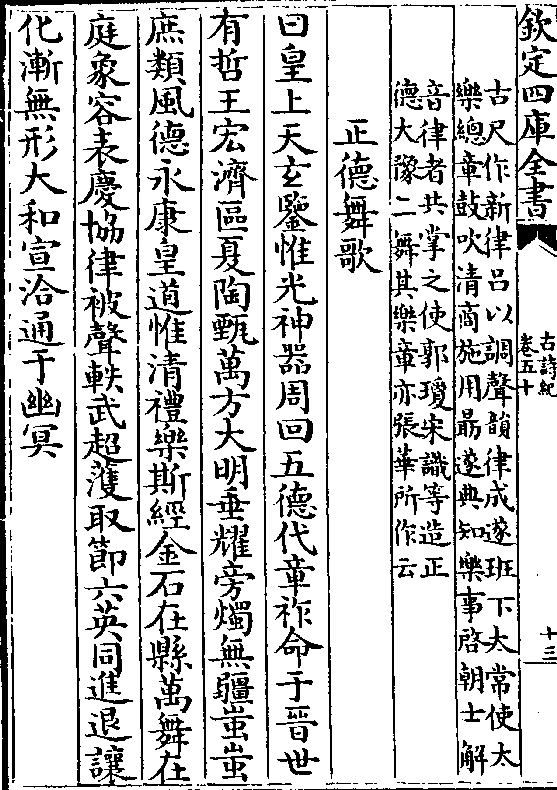 欽定四庫全書
古詩紀
卷五十
十三
古尺作新律呂以調聲韻律成遂班下太常使太
樂總章鼓吹清商施用朂遂典知樂事啓朝士解
音律者共掌之使郭瓊宋識等造正
德大豫二舞其樂章亦張華所作云
正德舞歌
曰皇上天玄鑒惟光神器周回五德代章祚命于晉世
有哲王宏濟區夏陶甄萬方大明垂耀旁燭無疆蚩蚩
庶類風德永康皇道惟清禮樂斯經金石在縣萬舞在
庭象容表慶協律被聲軼武超濩取節六英同進退讓
化漸無形大和宣洽通于幽冥